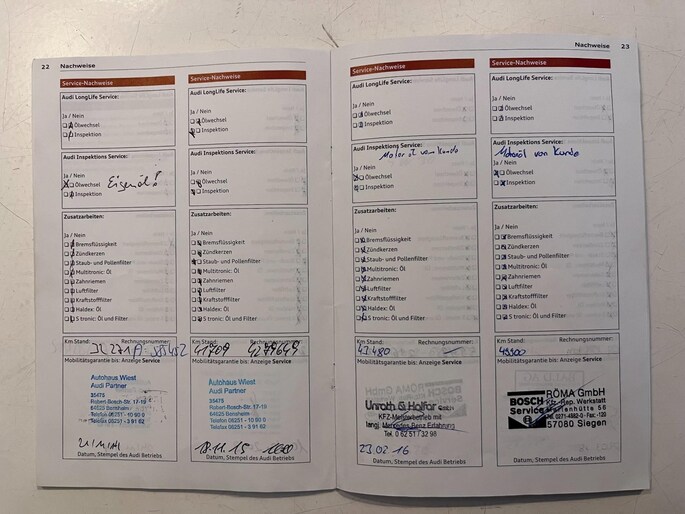 22 Nachweise
Service-Nachweise
Audi LongLife Service:
Ja / Nein
Ölwechsel
Inspektion
Audi Inspektions Service:
Ja / Nein
Ölwechsel
Eigenöl!
Inspektion
Zusatzarbeiten:
Ja / Nein
Bremsflüssigkeit
Zündkerzen
Staub- und Pollenfilter
Multitronic: Öl
Zahnriemen
Luftfilter
Kraftstofffilter
Haldex: Öl
S tronic: Öl und Filter
Km Stand: Rechnungsnummer:
Mobilitätsgarantie bis: Anzeige Service
Autohaus Wiest
Audi Partner
35475
Robert-Bosch-Str. 17-19
64625 Bensheim
Telefon 06251 - 10 90 0
Telefax 06251 - 3 91 62
Datum, Stempel des Audi Betriebs
Service-Nachweise
Audi LongLife Service:
Ja / Nein
Ölwechsel
Inspektion
Audi Inspektions Service:
Ja / Nein
Ölwechsel
Inspektion
Zusatzarbeiten:
Ja / Nein
Bremsflüssigkeit
Zündkerzen
Staub- und Pollenfilter
Multitronic: Öl
Zahnriemen
Luftfilter
Kraftstofffilter
Haldex: Öl
S tronic: Öl und Filter
Km Stand: Rechnungsnummer:
41709
Mobilitätsgarantie bis: Anzeige Service
Autohaus Wiest
Audi Partner
35475
Robert-Bosch-Str. 17-19
64625 Bensheim
Telefon 06251 - 10 90 0
Telefax 06251 - 3 91 62
18.11.15
Datum, Stempel des Audi Betriebs
Nachweise 23
Service-Nachweise
Audi LongLife Service:
Ja / Nein
Ölwechsel
Inspektion
Audi Inspektions Service:
Motoröl vom Kunde
Ja / Nein
Ölwechsel
Inspektion
Zusatzarbeiten:
Ja / Nein
Bremsflüssigkeit
Zündkerzen
Staub- und Pollenfilter
Multitronic: Öl
Zahnriemen
Luftfilter
Kraftstofffilter
Haldex: Öl
S tronic: Öl und Filter
Km Stand: Rechnungsnummer:
43.480 —
Mobilitätsgarantie bis: Anzeige Service
Unrath & Halfar GmbH
KFZ-Meisterbetrieb mit
langj. Mercedes Benz Erfahrung
Tel. 0 62 51 / 32 98
23.02.16
Datum, Stempel des Audi Betriebs
Service-Nachweise
Audi LongLife Service:
Ja / Nein
Ölwechsel
Inspektion
Audi Inspektions Service:
Motoröl von Kunde
Ja / Nein
Ölwechsel
Inspektion
Zusatzarbeiten:
Ja / Nein
Bremsflüssigkeit
Zündkerzen
Staub- und Pollenfilter
Multitronic: Öl
Zahnriemen
Luftfilter
Kraftstofffilter
Haldex: Öl
S tronic: Öl und Filter
Km Stand: Rechnungsnummer:
Mobilitätsgarantie bis: Anzeige Service
BOSCH
Service
RÖMA GmbH
Kfz.-Rep. Werkstatt
Marienhütte 56
57080 Siegen
Datum, Stempel des Audi Betriebs